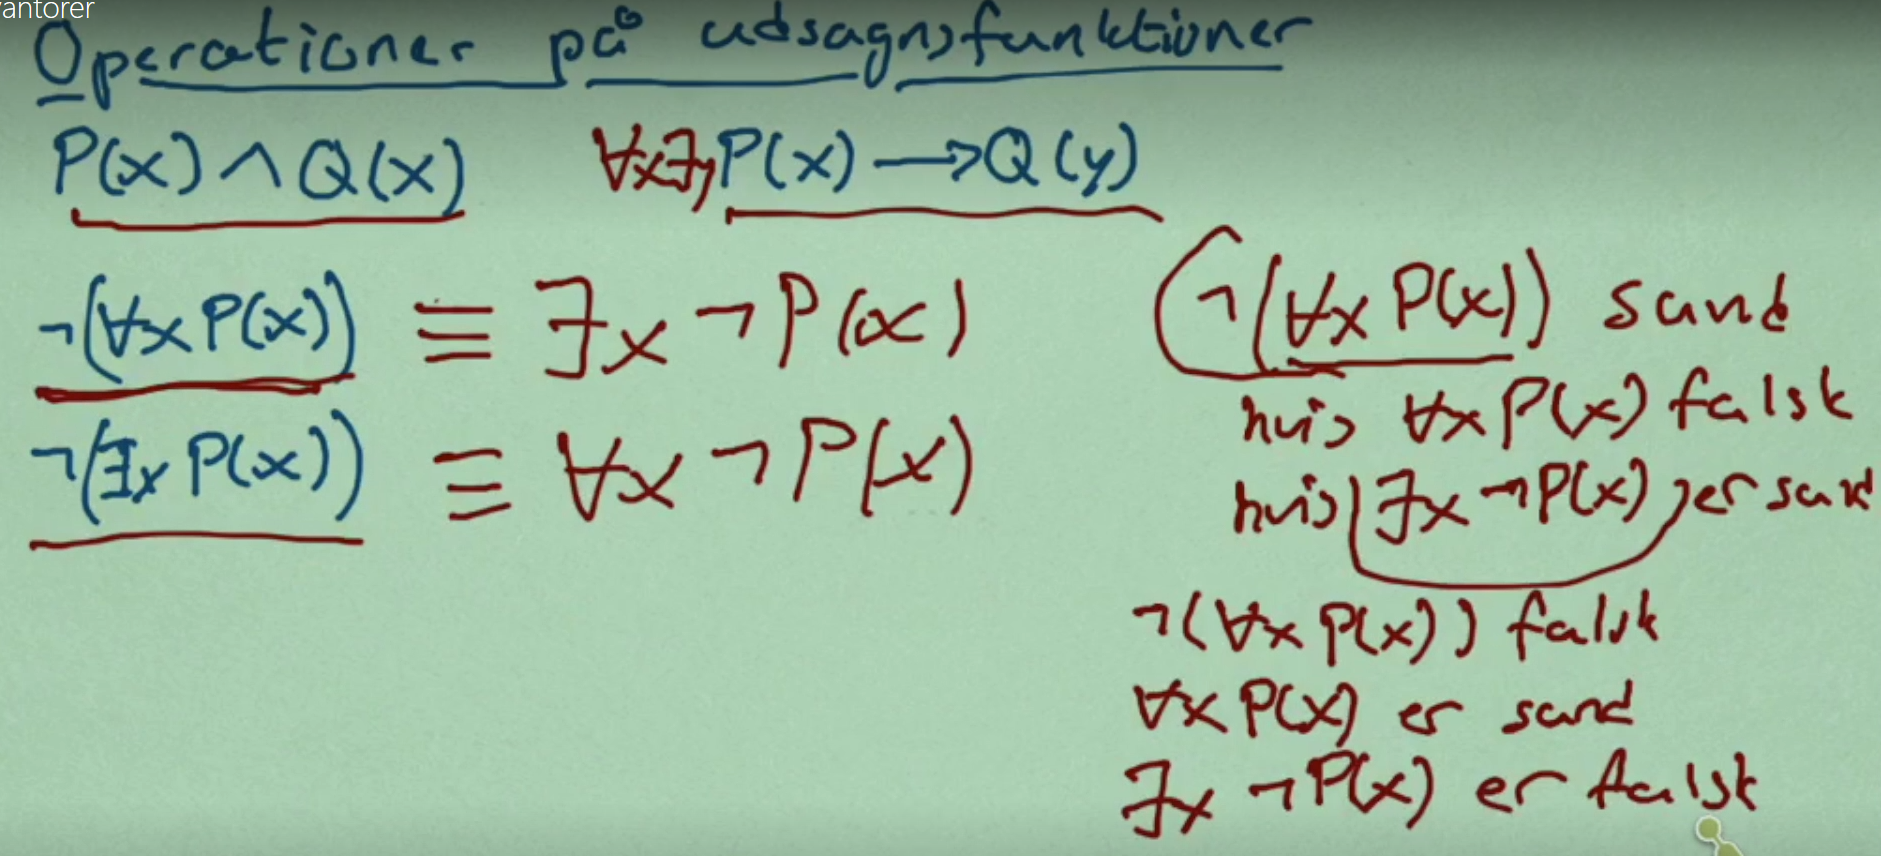 antorer
Operationer på udsagnsfunktioner
P(x) ∧ Q(x)
∀x∃y P(x) → Q(y)
¬(∀x P(x)) ≡ ∃x ¬P(x)
¬(∃x P(x)) ≡ ∀x ¬P(x)
¬(∀x P(x)) sand
hvis ∀x P(x) falsk
hvis ∃x ¬P(x) er sand
¬(∀x P(x)) falsk
∀x P(x) er sand
∃x ¬P(x) er falsk